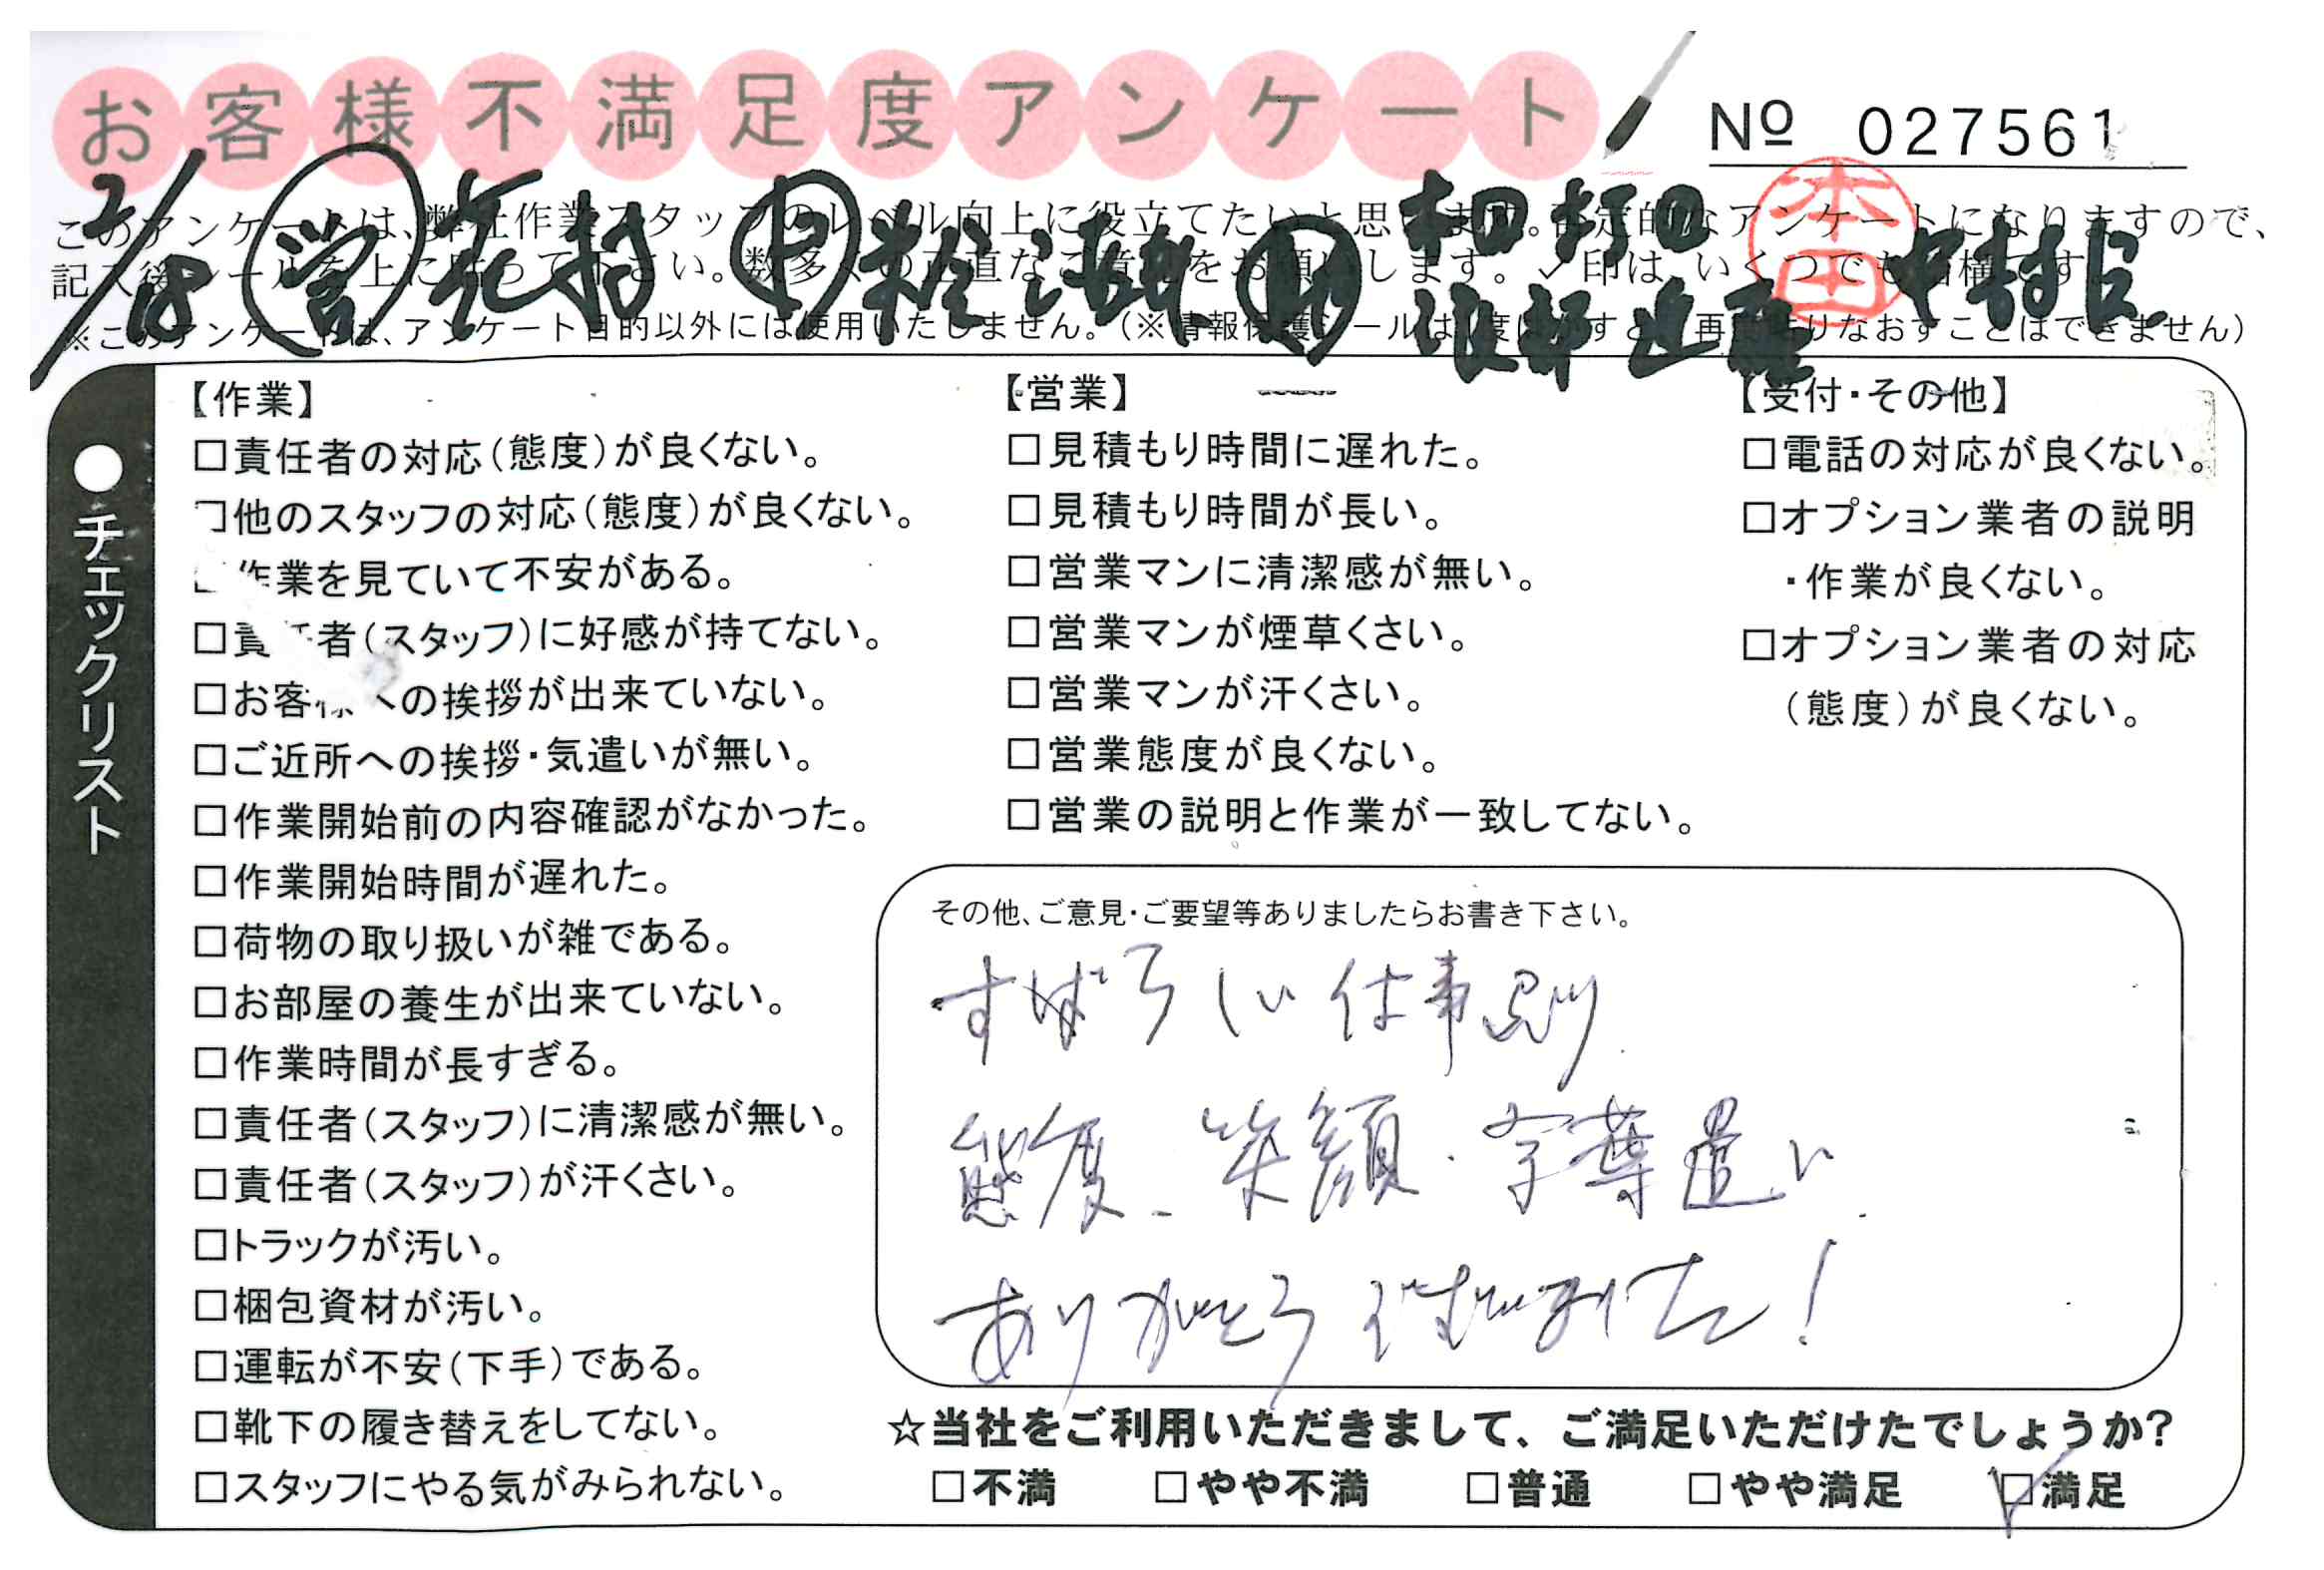 お客様不満足度アンケート
№ 027561
2/18 営 花村
本田
このアンケートは、弊社作業スタッフのレベル向上に役立てたいと思います。否定的なアンケートになりますので、
記入後シールを上に貼って下さい。数多くの正直なご意見をお願いします。✓印は、いくつでも結構です。
※このアンケートは、アンケート目的以外には使用いたしません。(※情報保護シールは1度はがすと、再度はりなおすことはできません)
●チェックリスト
【作業】
□責任者の対応(態度)が良くない。
□他のスタッフの対応(態度)が良くない。
□作業を見ていて不安がある。
□責任者(スタッフ)に好感が持てない。
□お客様への挨拶が出来ていない。
□ご近所への挨拶・気遣いが無い。
□作業開始前の内容確認がなかった。
□作業開始時間が遅れた。
□荷物の取り扱いが雑である。
□お部屋の養生が出来ていない。
□作業時間が長すぎる。
□責任者(スタッフ)に清潔感が無い。
□責任者(スタッフ)が汗くさい。
□トラックが汚い。
□梱包資材が汚い。
□運転が不安(下手)である。
□靴下の履き替えをしてない。
□スタッフにやる気がみられない。
【営業】
□見積もり時間に遅れた。
□見積もり時間が長い。
□営業マンに清潔感が無い。
□営業マンが煙草くさい。
□営業マンが汗くさい。
□営業態度が良くない。
□営業の説明と作業が一致してない。
【受付・その他】
□電話の対応が良くない。
□オプション業者の説明
・作業が良くない。
□オプション業者の対応
(態度)が良くない。
その他、ご意見・ご要望等ありましたらお書き下さい。
すばらしい仕事ぶり
態度、笑顔・言葉遣い
ありがとうございました!
☆当社をご利用いただきまして、ご満足いただけたでしょうか?
□不満 □やや不満 □普通 □やや満足 ☑満足